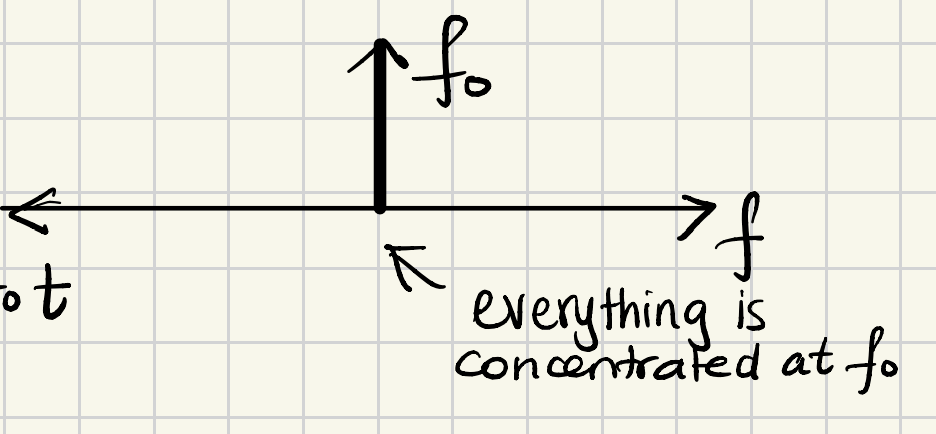 fo
f
o t
everything is
concentrated at fo